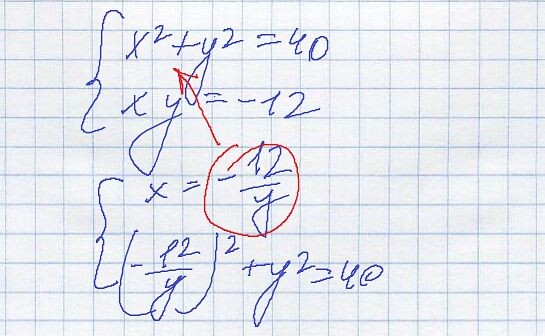 x² + y² = 40
xy = -12
x = -12/y
(-12/y)² + y² = 40